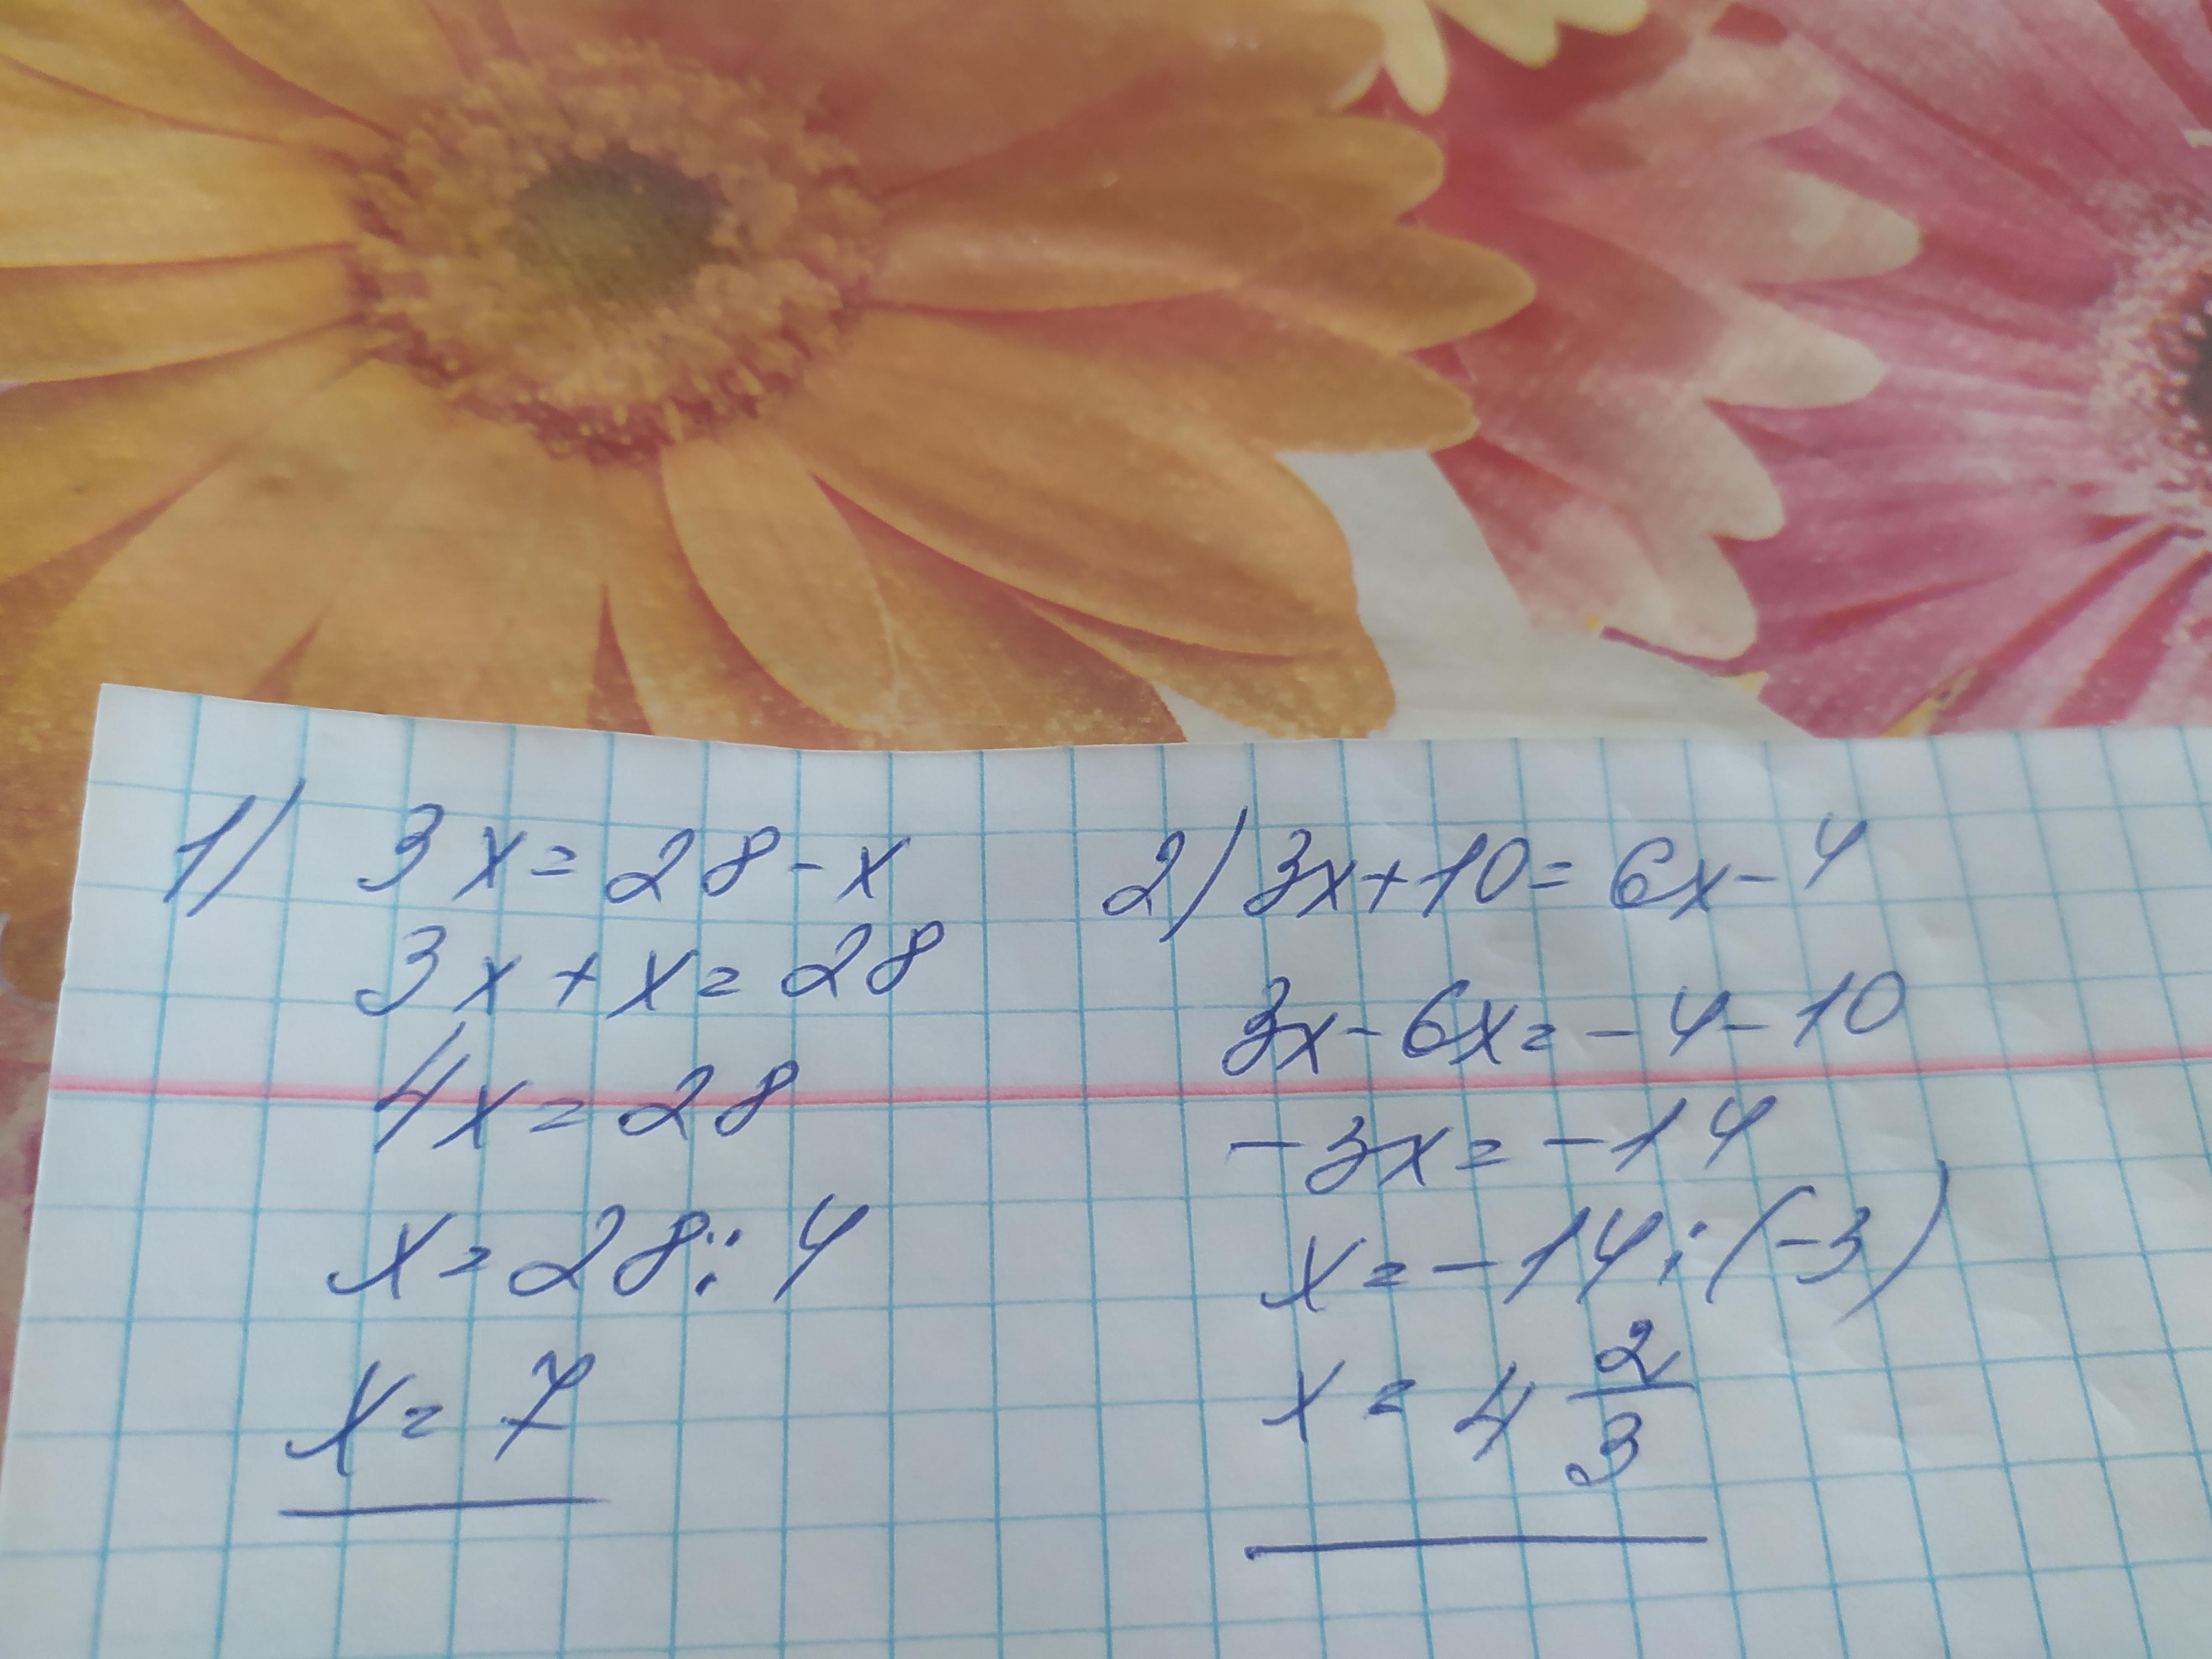 1) 3x=28-x
3x+x=28
4x=28
x=28:4
x=7
2) 3x+10=6x-4
3x-6x=-4-10
-3x=-14
x=-14:(-3)
x=4 2/3